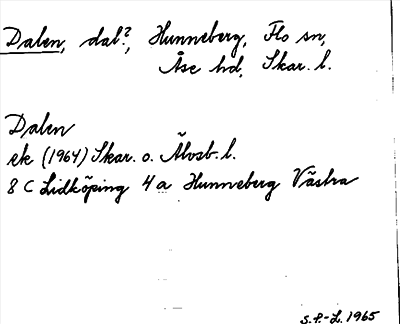 Dalen, dal?, Hunneberg, Flo sn,
Åse hd, Skar. l.
Dalen
ek (1964) Skar. o. Älvsb. l.
8 C Lidköping 4 a Hunneberg Västra
S.F.-L. 1965